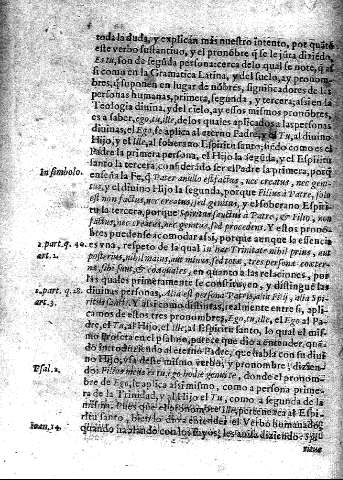 toda la duda, y explicàn más nuestro intento, por quãto
este verbo sustantiuo, y el pronõbre q̃ se le jũta diziẽdo,
Es tu, son de segũda persona: cerca de lo qual se note, q̃ aſ
si como en la Gramatica Latina, y del suelo, ay pronom-
bres, q̃ suponen en lugar de nõbres, significadores de las
personas humanas, primera, segunda, y tercera; assi en la
Teologia diuina, y del cielo, ay essos mismos tres, que es
a saber, ego, tu, ille, de los quales aplicados a las personas
diuinas, el Ego, se aplica al eterno Padre, y el Tu, al diuino
Hijo, y el Ille, al soberano Espiritu santo; siẽdo como es el
Padre la primera persona, el Hijo la segũda, y el Espiritu
santo la tercera, considerãdo ser el Padre la primera, porq̃
In simbolo.
enseña la Fe, q̃ Pater à nullo est factus, nec creatus, nec geni-
tus, y el diuino Hijo la segunda, porque Filius à Patre, solo
est non factus, nec creatus, sed genitus, y el soberano Espiri-
tu la tercera, porque Spiritus sanctus à Patre, & Filio, non
factus, nec creatus, nec genitus, sed procedens. Y estos pronõ-
bres puedense acomodar assi, porque aunque la essencia
1. part. q. 42.
art. 2.
es vna, respeto de la qual in hac Trinitate nihil prius, aut
posterius, nihil maius, aut minus, sed totæ, tres personæ coæter-
næ, sibi sunt, & coæquales, en quanto a las relaciones, por
las quales primeramente se constituyen, y distinguẽ las
1. part. q. 28.
art. 3.
diuinas personas, Alia est persona Patris, alia Filij, alia Spi-
ritus sancti. Y assi como distintas, realmente entre si, apli-
camos de estos tres pronombres, Ego, tu, ille, el Ego al Pa-
dre, el Tu, al Hijo, el ille, al Espiritu santo, lo qual el mis-
mo Profeta en el psalmo, parece que dio a entender, quã-
do introduziendo al eterno Padre, que habla con su diui
no Hijo, vsa deste mismo verbo, y pronombre, dizien-
Psal. 2.
do: Filius meus es tu, ego hodie genui te, donde el pronom-
bre de Ego, se aplica assi mismo, como a persona prime-
ra de la Trinidad, y al Hijo el Tu, como a segunda de la
misma. Pues que el pronombre Ille, pertenezca al Espi-
ritu santo, bien lo dio a entender el Verbo humanado,
Ioan. 14.
quando hablando con los suyos, les auisa diziendo: Spi-